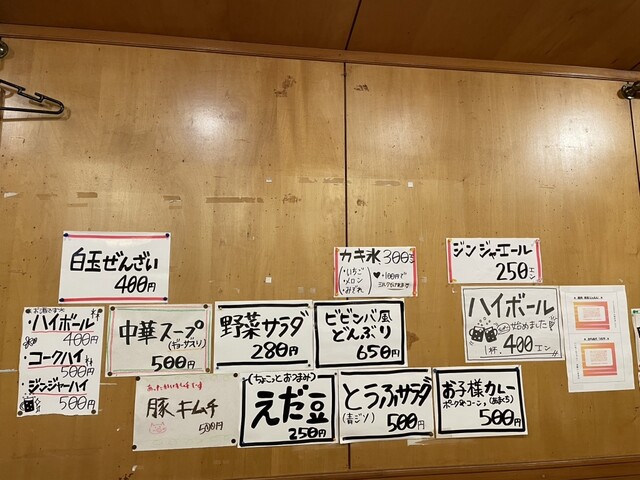 白玉ぜんざい
400円
カキ氷 300円
・いちご
・メロン
・みぞれ
♥・100円で
ミルクかけ放題
ジンジャーエール
250エン
お酒です
・ハイボール
400円
・コークハイ
500円
・ジンジャーハイ
500円
中華スープ
500円
野菜サラダ
280円
ビビンバ風
どんぶり
650円
ハイボール
始めました!!
1杯、400エン
あったかいキムチです
豚キムチ
500円
(ちょこっとおつまみ)
えだ豆
250円
とうふサラダ
(青ジソ)
500円
お子様カレー
ポーク&コーン、(あまくち)
500円